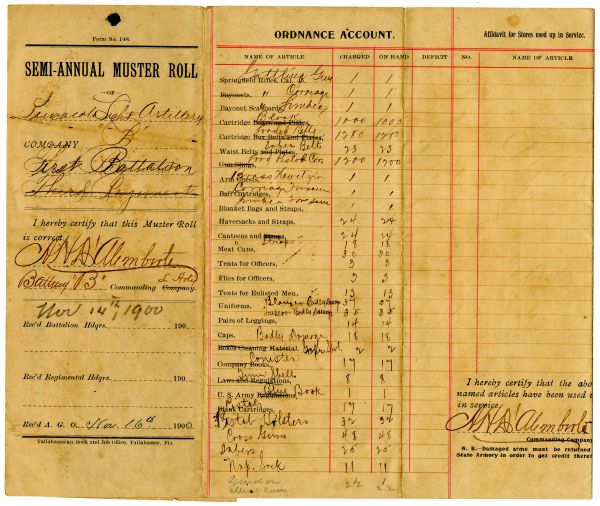 Form No. 148.
SEMI-ANNUAL MUSTER ROLL
—OF—
Light Artillery
"B"
COMPANY
First Battalion
Third Regiment
I hereby certify that this Muster Roll
is correct.
Battery "B" Commanding Company.
Nov 14th, 1900
Rec'd Battalion Hdqrs. 190
Rec'd Regimental Hdqrs. 190
Rec'd A. G. O. Nov. 16th 1900.
Tallahasseean Book and Job Office, Tallahassee, Fla.
ORDNANCE ACCOUNT.
NAME OF ARTICLE CHARGED ON HAND DEFICIT
Gattling Gun
Springfield Rifles, Cal. 1 1
Bayonets, " Carriage 1 1
Bayonet Scabbards, Limber 1 1
Cartridge Boxes and Plates, Blank 1000 1000
Cartridge Box Belts and Plates, 1250 1200
Waist Belts and Plates, Saber Belts 23 23
Gun Slings, 1200 1200
Brass Howitzer
Arm Chests, 1 1
Carriage
Ball Cartridges, 1 1
Limber
Blanket Bags and Straps, 1 1
Haversacks and Straps, 24 24
Canteens and Straps, 24 24
" Straps 18 18
Meat Cans, 30 30
Tents for Officers, 3 3
Flies for Officers, 3 3
Tents for Enlisted Men, 13 13
Uniforms, Blouses Badly Damag
Trouser Badly Damag 35 35
Pairs of Leggings, 14 14
Caps, Badly Damag 18 18
Boxes Cleaning Material, 2 2
Canister
Company Books, 17 17
Shells
Laws and Regulations, 8 8
U. S. Army Regulations, Blue Book 1 1
Pistols
Blank Cartridges, 17 17
Pistol Holsters 32 34
Cross Guns 48 48
Sabers 25 25
Nap. Sack 11 11
Guidon
Affidavit for Stores used up in Service.
NO. NAME OF ARTICLE
I hereby certify that the abo
named articles have been used i
in service.
Commanding Company
N. B.—Damaged arms must be returned
State Armory in order to get credit theref